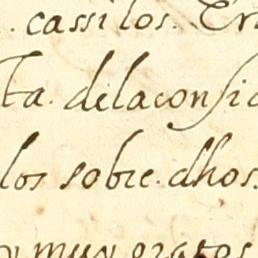 cassi los. Era
ta. de la consid
los sobre. dhos.
y muy gratos